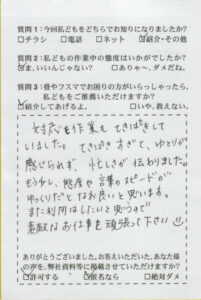 質問1:今回私どもをどちらでお知りになりましたか?
□チラシ □電話 □ネット ☑紹介・その他
質問2:私どもの作業中の態度はいかがでしたか?
☑ま、いいんじゃない? □ありゃ〜、ダメだね。
質問3:畳やフスマでお困りの方がいらっしゃったら、
私どもをご推薦いただけますか?
☑紹介してあげるよ。 □いや、教えない。
対応も作業もてきぱきして
いました。てきぱきすぎて、ゆとりが
感じられず、忙しさが伝わりました。
もう少し、態度や言葉のスピードが
ゆっくりだとなお良いと思います。
また利用はしたいと思うので
素敵なお仕事を頑張って下さい
ありがとうございました。お答えいただいた、あなた様
の声を、弊社資料等に掲載させていただけますか?
□許可する ☑匿名なら □絶対ダメ